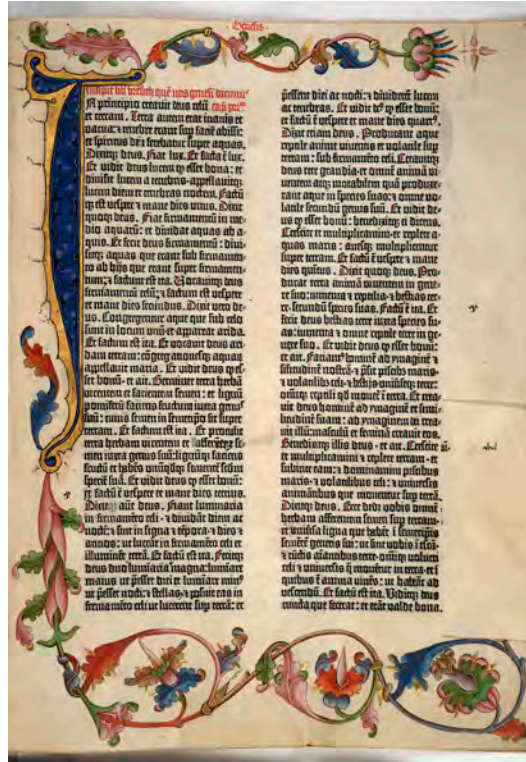 Genesis
Incipit lib̄ bresich quē nos genesī dicim⁹
IN principio creauit deus celū cap̄ pm̄
et terram. Terra autem erat inanis et
vacua: et tenebre erant sup faciē abissi:
et spiritus dn̄i ferebatur super aquas.
Dixitq; deus. Fiat lux. Et facta ē lux.
Et vidit deus lucem q esset bona: et
diuisit lucem a tenebris·appellauitq;
lucem diem et tenebras noctem. Factū
q; est vespere et mane dies vnus. Dixit
quoq; deus. Fiat firmamentū in me-
dio aquarū: et diuidat aquas ab a-
quis. Et fecit deus firmamentū: diui-
sitq; aquas que erant sub firmamen-
to ab hijs que erant super firmamen-
tum: et factum est ita. Vocauitq; deus
firmamentū celū: et factum est vespere
et mane dies secundus. Dixit vero de-
us. Congregentur aque que sub celo
sunt in locum vnū et appareat arida.
Et factum est ita. Et vocauit deus ari-
dam terram: cōgregacionesq; aquaꝝ
appellauit maria. Et vidit deus q es-
set bonū· et ait. Germinet terra herbā
virentem et facientem semen: et lignū
pomiferū faciens fructum iuxta genus
suū: cuius semen in semetipso sit super
terram. Et factum est ita. Et protulit
terra herbam virentem et facientem se-
men iuxta genus suū: lignūq; faciens
fructū et habēs vnūqdq; sementē scdm
speciē suā. Et vidit deus q esset bonū:
et factū ē vespere et mane dies tercius.
Dixitq; autē deus. Fiant luminaria
in firmamēto celi· et diuidāt diem ac
noctē: et sint in signa et tēpora· et dies et
annos: ut luceāt in firmamēto celi et
illuminēt terrā. Et factū est ita. Fecitq;
deus duo luminaria magna: luminare
maius ut pēsset diei et luminare min⁹
ut pēsset nocti: et stellas· et posuit eas in
firmamēto celi ut lucerent sup terrā: et
pēssent diei ac nocti: et diuiderēt lucem
ac tenebras. Et vidit de⁹ q esset bonū:
et factū ē vespere et mane dies quart⁹.
Dixit etiam deus. Producant aque
reptile anime viuentis et volatile sup
terram: sub firmamēto celi. Creauitq;
deus cete grandia· et omnē animā vi-
uentem atq; motabilem quā produxe-
rant aque in species suas: et omne vo-
latile secundū genus suū. Et vidit de-
us q esset bonū: benedixitq; ei dicens.
Crescite et multiplicamini· et replete a-
quas maris: auesq; multiplicentur
super terram. Et factū ē vespere et mane
dies quintus. Dixit quoq; deus. Pro-
ducat terra animā viuentem in gene-
re suo: iumenta et reptilia· et bestias ter-
re· secundū species suas. Factū ē ita. Et
fecit deus bestias terre iuxta species su-
as: iumenta et omne reptile terre in ge-
nere suo. Et vidit deus q esset bonū:
et ait. Faciam⁹ hominē ad ymaginē et
similitudinē nostrā· et p̄sit piscibs maris·
et volatilibs celi· et bestijs vniūseq; terre:
omniq; reptili qd mouet ī terra. Et crea-
uit deus hominē ad ymaginē et simi-
litudinē suam: ad ymaginem dei crea-
uit illū: masculū et feminā creauit eos.
Benedixitq; illis deus· et ait. Crescite
et multiplicamini et replete terram· et
subicite eam: et dominamini piscibus
maris· et volatilibus celi: et vniuersis
animātibus que mouentur sup terrā.
Dixitq; deus. Ecce dedi vobis omnē
herbam afferentem semen sup terram·
et vniuersa ligna que habēt ī semetipsis
sementē generis sui: ut sint vobis ī escā·
et cūctis aīantibus terre· oīniq; volucri
celi et vniuersis q mouētur in terra· et ī
quibus ē anima viuēs: ut habeāt ad
vescendū. Et factū est ita. Viditq; deus
cuncta que fecerat: et erāt valde bona.